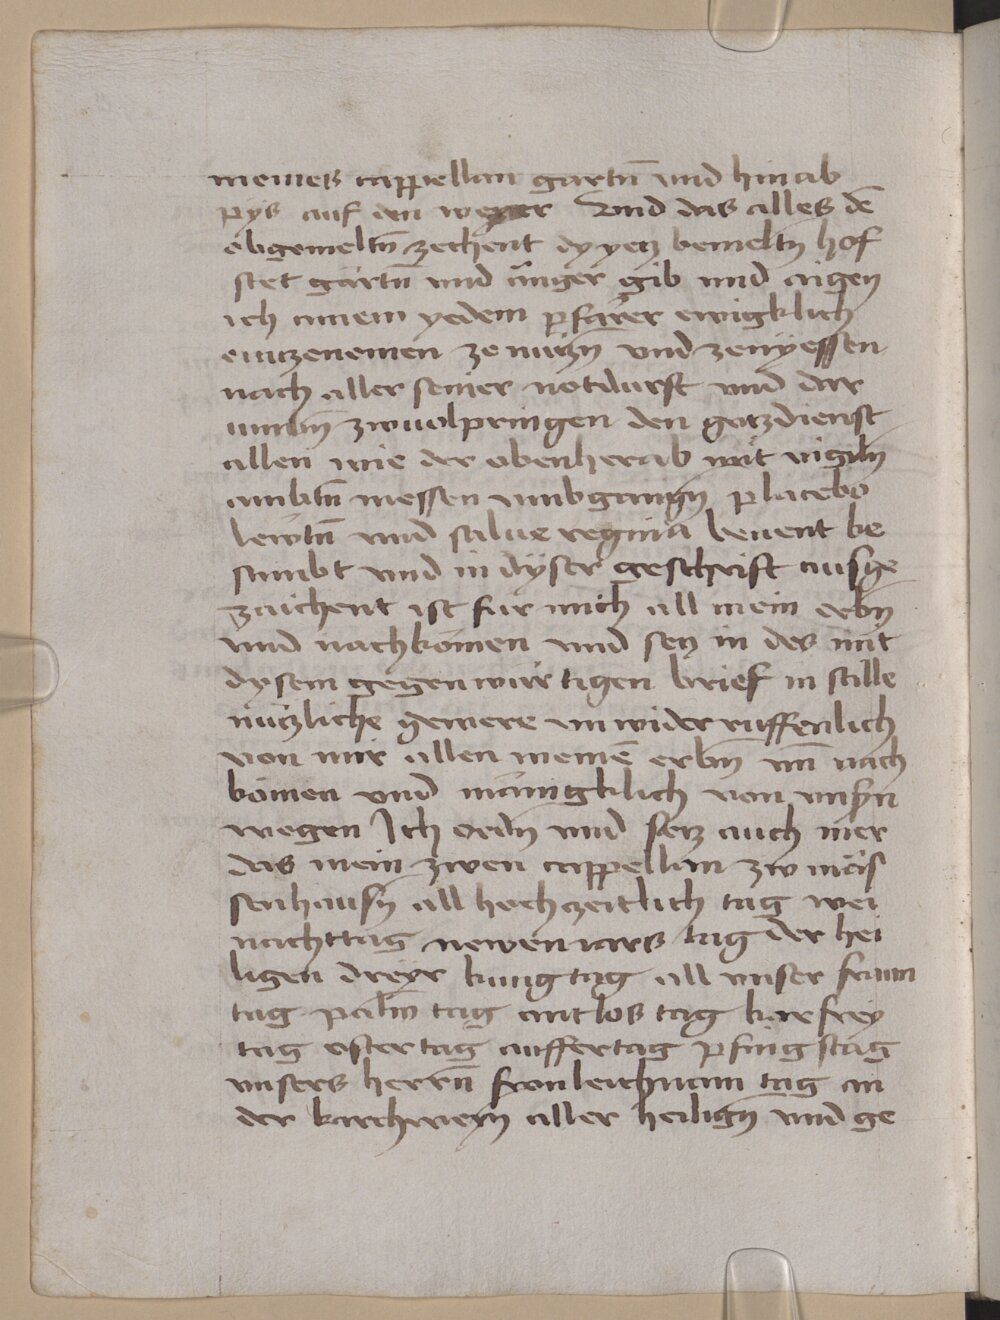 meines cappellan gartn̄ vnd hinab
pys auf den weyer Vnd das alles dē
obgemeltn̄ zechent dy yetz bemeltn̄ hof
stet gärtn̄ vnd ånger gib vnd aigen
ich ainem yedem pfarrer ewigklich
einzenemen ze nützn̄ vnd zenÿessen
nach aller seiner notdurft vnd dar
vmbn̄ zwuolpringen den gotzdienst
allen wie der obenherab mit vigiln̄
ambtn̄ messen vmbgangn̄ placebo
lewtn̄ vnd salue regina benent be
stimbt vnd in dÿser geschrift ausge
zaichent ist für mich all mein erbn̄
vnd nachkömen vnd setz in des mit
dysem gegenwürtigen brief in stille
nützliche gewere vnwiderruffenlich
von mir allen meinē erbn̄ vn̄ nach
kömen vnd mänigklich von vnsn̄
wegen Ich ordn̄ vnd setz auch mer
das mein zwen cappellan zw mäis
senhausn̄ all hochzeitlich tag wei
nachttag newen iars tag der hei
ligen dreyr kunig tag all vnser frawn
tag palm̄ tag antlos tag karfrey
tag ostertag auffertag pfingstag
vnsers herrn̄ fronleichnam tag an
der kirchweyn̄ aller heilign̄ vnd ge